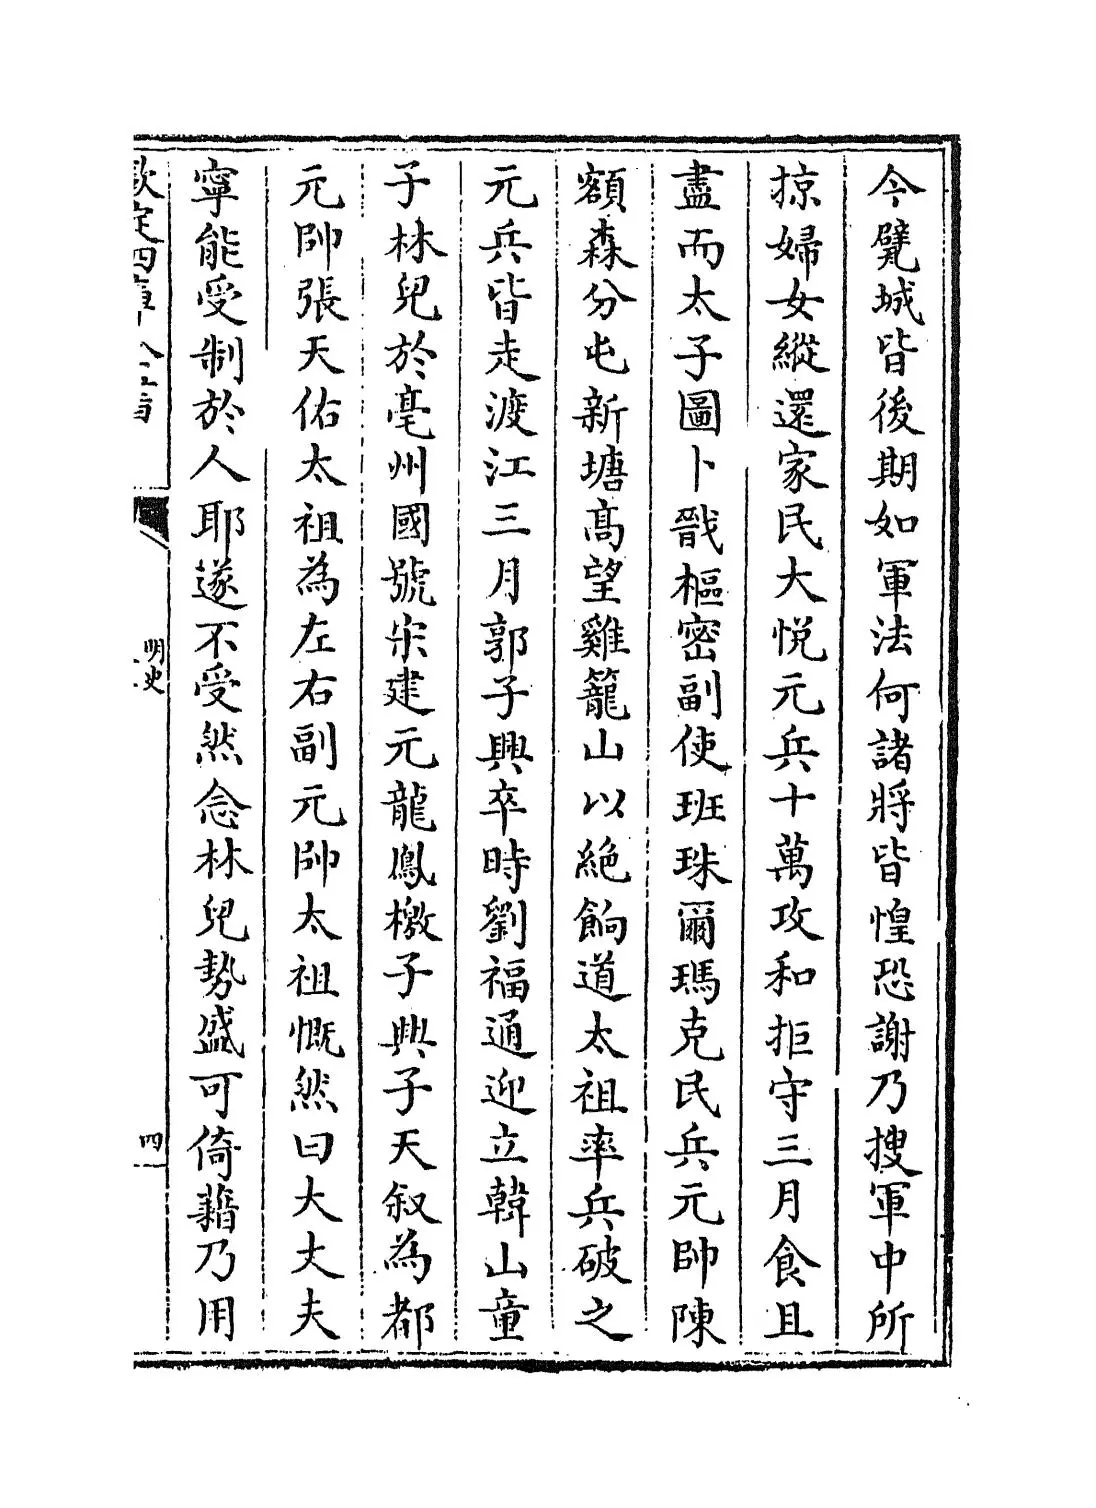 今甓城皆後期如軍法何諸將皆惶恐謝乃搜軍中所
掠婦女縱還家民大悅元兵十萬攻和拒守三月食且
盡而太子圖卜戩樞密副使班珠爾瑪克民兵元帥陳
額森分屯新塘髙望雞籠山以絶餉道太祖率兵破之
元兵皆走渡江三月郭子興卒時劉福通迎立韓山童
子林兒於亳州國號宋建元龍鳳檄子興子天叙為都
元帥張天佑太祖為左右副元帥太祖慨然曰大丈夫
寧能受制於人耶遂不受然念林兒勢盛可倚藉乃用
欽定四庫全書
明史
四